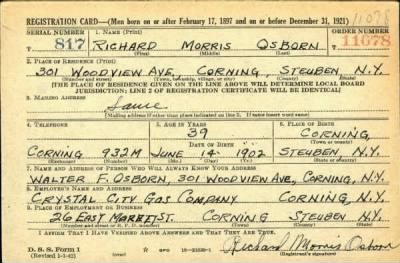 11078
REGISTRATION CARD—(Men born on or after February 17, 1897 and on or before December 31, 1921)
SERIAL NUMBER 1. NAME (Print) ORDER NUMBER
T 817 RICHARD MORRIS OSBORN 11078
(First) (Middle) (Last)
2. PLACE OF RESIDENCE (Print)
301 WOODVIEW AVE, CORNING, STEUBEN N.Y.
(Number and street) (Town, township, village, or city) (County) (State)
[THE PLACE OF RESIDENCE GIVEN ON THE LINE ABOVE WILL DETERMINE LOCAL BOARD
JURISDICTION; LINE 2 OF REGISTRATION CERTIFICATE WILL BE IDENTICAL]
3. MAILING ADDRESS
Same
[Mailing address if other than place indicated on line 2. If same insert word same]
4. TELEPHONE 5. AGE IN YEARS 6. PLACE OF BIRTH
39 CORNING
DATE OF BIRTH (Town or county)
CORNING 932M JUNE 14 1902 STEUBEN N.Y.
(Exchange) (Number) (Mo.) (Day) (Yr.) (State or country)
7. NAME AND ADDRESS OF PERSON WHO WILL ALWAYS KNOW YOUR ADDRESS
WALTER F. OSBORN, 301 WOODVIEW AVE., CORNING, N.Y.
8. EMPLOYER'S NAME AND ADDRESS
CRYSTAL CITY GAS COMPANY CORNING, N.Y.
9. PLACE OF EMPLOYMENT OR BUSINESS
26 EAST MARKET ST. CORNING STEUBEN N.Y.
(Number and street or R. F. D. number) (Town) (County) (State)
I AFFIRM THAT I HAVE VERIFIED ABOVE ANSWERS AND THAT THEY ARE TRUE.
D. S. S. Form 1 Richard Morris Osborn
(Revised 1-1-42) (Registrant's signature)